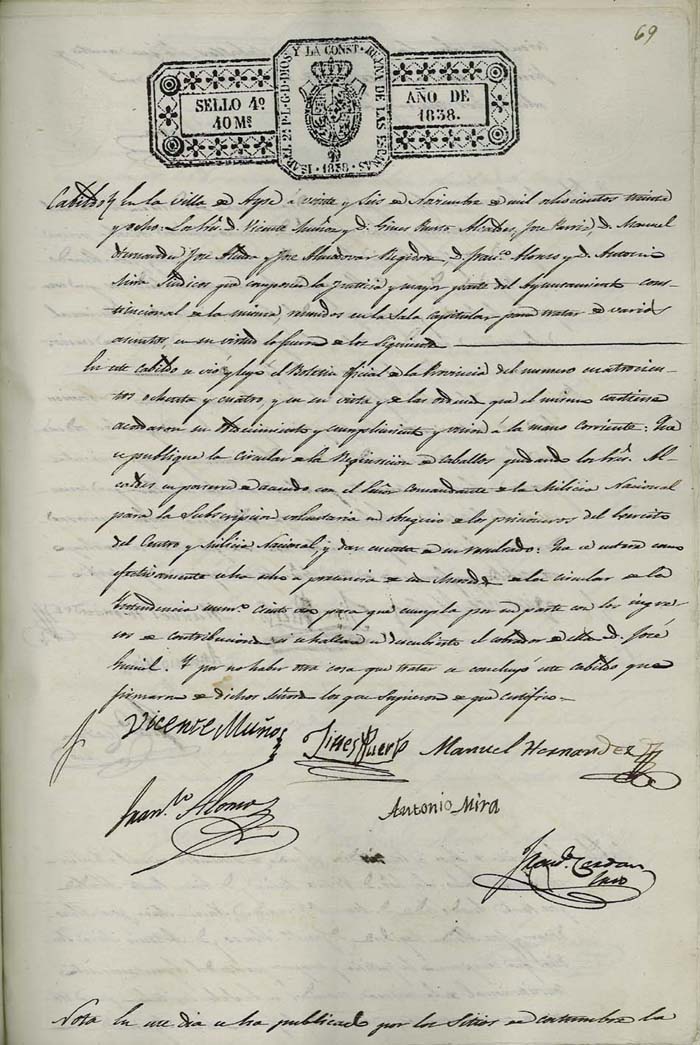 69
SELLO 4º
40 Ms
ISABEL 2ª P.L.G.D. DIOS Y LA CONST. REYNA DE LAS ESPAÑAS
1838
AÑO DE
1838.
Cabildo En la Villa de Aspe á veinte y seis de Noviembre de mil ochocientos treinta
y ocho: Los Sres. D. Vicente Muñoz y D. Gines Puerto Alcaldes, Jose D. Manuel
Hernandez Jose y Jose Almodovar Regidores, D. Franco. Alonso y D. Antonio
Mira Sindicos que componen la Justicia y mayor parte del Ayuntamiento cons-
titucional de la misma, reunidos en la Sala Capitular para tratar de varios
asuntos, en su virtud lo fueron de los Siguientes
En este Cabildo se vió y leyó el Boletin oficial de la Provincia del numero cuatrocien-
tos ochenta y cuatro, y en su vista y de las ordenes que el mismo contiene
acordaron su Obedecimiento y cumplimiento y union á la mano corriente: Que
se publique la Circular de la Requisicion de caballos quedando los Sres. Al-
caldes en ponerse de acuerdo con el Señor Comandante de la Milicia Nacional
para la Subscripcion voluntaria en obsequio de los prisioneros del Exercito
del Centro y Milicia Nacional, y dar cuenta de su resultado: Que se entere como
efectivamente se ha hecho á presencia de de la circular de la
Yntendencia numo. Ciento para que cumpla por su parte con los ingre-
sos de Contribuciones si se hallan en descubierto el cobrador de ellas D. José
Y por no haber otra cosa que tratar se concluyó este cabildo que
firmaron de dichos Señores los que Supieron de que Certifico
Vicente Muñoz
Gines Puerto
Manuel Hernandez
Franco. Alonso
Antonio Mira
Franco. Cerdan
Nota En este dia se ha publicado por los Sitios de costumbre la